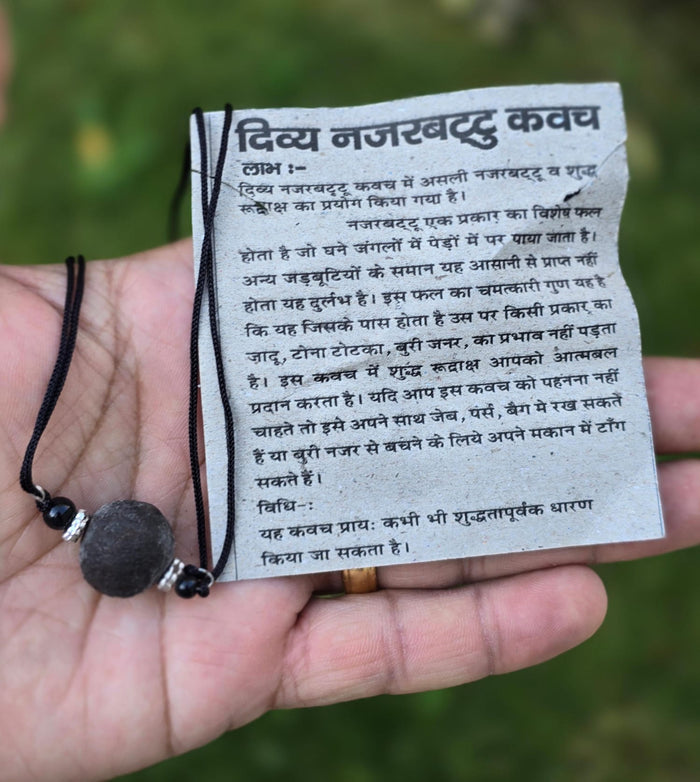 दिव्य नजरबट्टु कवच
लाभ :–
दिव्य नजरबट्टू कवच में असली नजरबट्टू व शुद्ध
रूद्राक्ष का प्रयोग किया गया है।
नजरबट्टू एक प्रकार का विशेष फल
होता है जो घने जंगलों में पेड़ों में पर पाया जाता है।
अन्य जड़बूटियों के समान यह आसानी से प्राप्त नहीं
होता यह दुर्लभ है। इस फल का चमत्कारी गुण यह है
कि यह जिसके पास होता है उस पर किसी प्रकार का
जादू, टोना टोटका, बुरी जनर, का प्रभाव नहीं पड़ता
है। इस कवच में शुद्ध रूद्राक्ष आपको आत्मबल
प्रदान करता है। यदि आप इस कवच को पहनना नहीं
चाहते तो इसे अपने साथ जेब, पर्स, बैग मे रख सकते
हैं या बुरी नजर से बचने के लिये अपने मकान में टाँग
सकते हैं।
विधि–:
यह कवच प्रायः कभी भी शुद्धतापूर्वक धारण
किया जा सकता है।